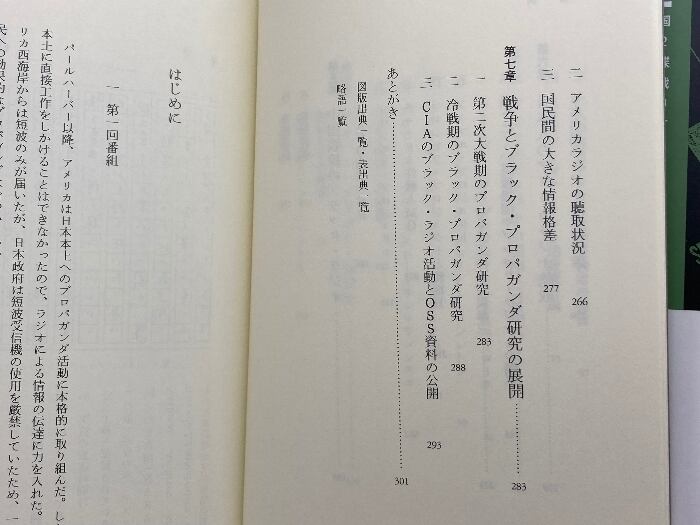 二 アメリカラジオの聴取状況 266
三 国民間の大きな情報格差 277
第七章 戦争とブラック・プロパガンダ研究の展開 283
一 第二次大戦期のプロパガンダ研究 283
二 冷戦期のブラック・プロパガンダ研究 288
三 CIAのブラック・ラジオ活動とOSS資料の公開 293
あとがき 301
図版出典一覧・表出典一覧
略語一覧
はじめに
一 第一回番組
パールハーバー以降、アメリカは日本本土へのプロパガンダ活動に本格的に取り組んだ。し
本土に直接工作をしかけることはできなかったので、ラジオによる情報の伝達に力を入れた。
リカ西海岸からは短波のみが届いたが、日本政府は短波受信機の使用を厳禁していたため、一